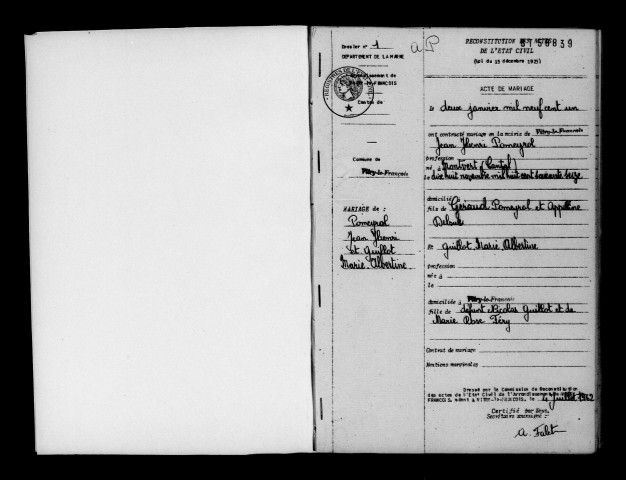 Dossier n° 1
DEPARTEMENT DE LA MARNE
Arrondissement de
VITRY-LE-FRANCOIS
Canton de
Commune de
Vitry-le-François
MARIAGE de :
Pomeyrol
Jean Henri
et Guillot
Marie Albertine
aP
RECONSTITUTION DES ACTES
DE L'ETAT CIVIL
(Loi du 15 décembre 1923)
ACTE DE MARIAGE
Le deux janvier mil neuf cent un
ont contracté mariage en la mairie de Vitry-le-François
Jean Henri Pomeyrol
profession
né à Montvert (Cantal)
le dix huit novembre mil huit cent soixante seize
domicilié à
fils de Géraud Pomeyrol et Appoline
Delout
Et Guillot Marie Albertine
profession
née à
le
domiciliée à Vitry-le-François
fille de défunt Nicolas Guillot et de
Marie Rose Féry
Contrat de mariage
Mentions marginales
Dressé par la Commission de Reconstitution
des actes de l'Etat Civil de l'Arrondissement de VITRY-
FRANCOIS, séant à VITRY-le-FRANCOIS, le 4 Juillet 1942
Certifié par Nous,
Secrétaire soussigné :